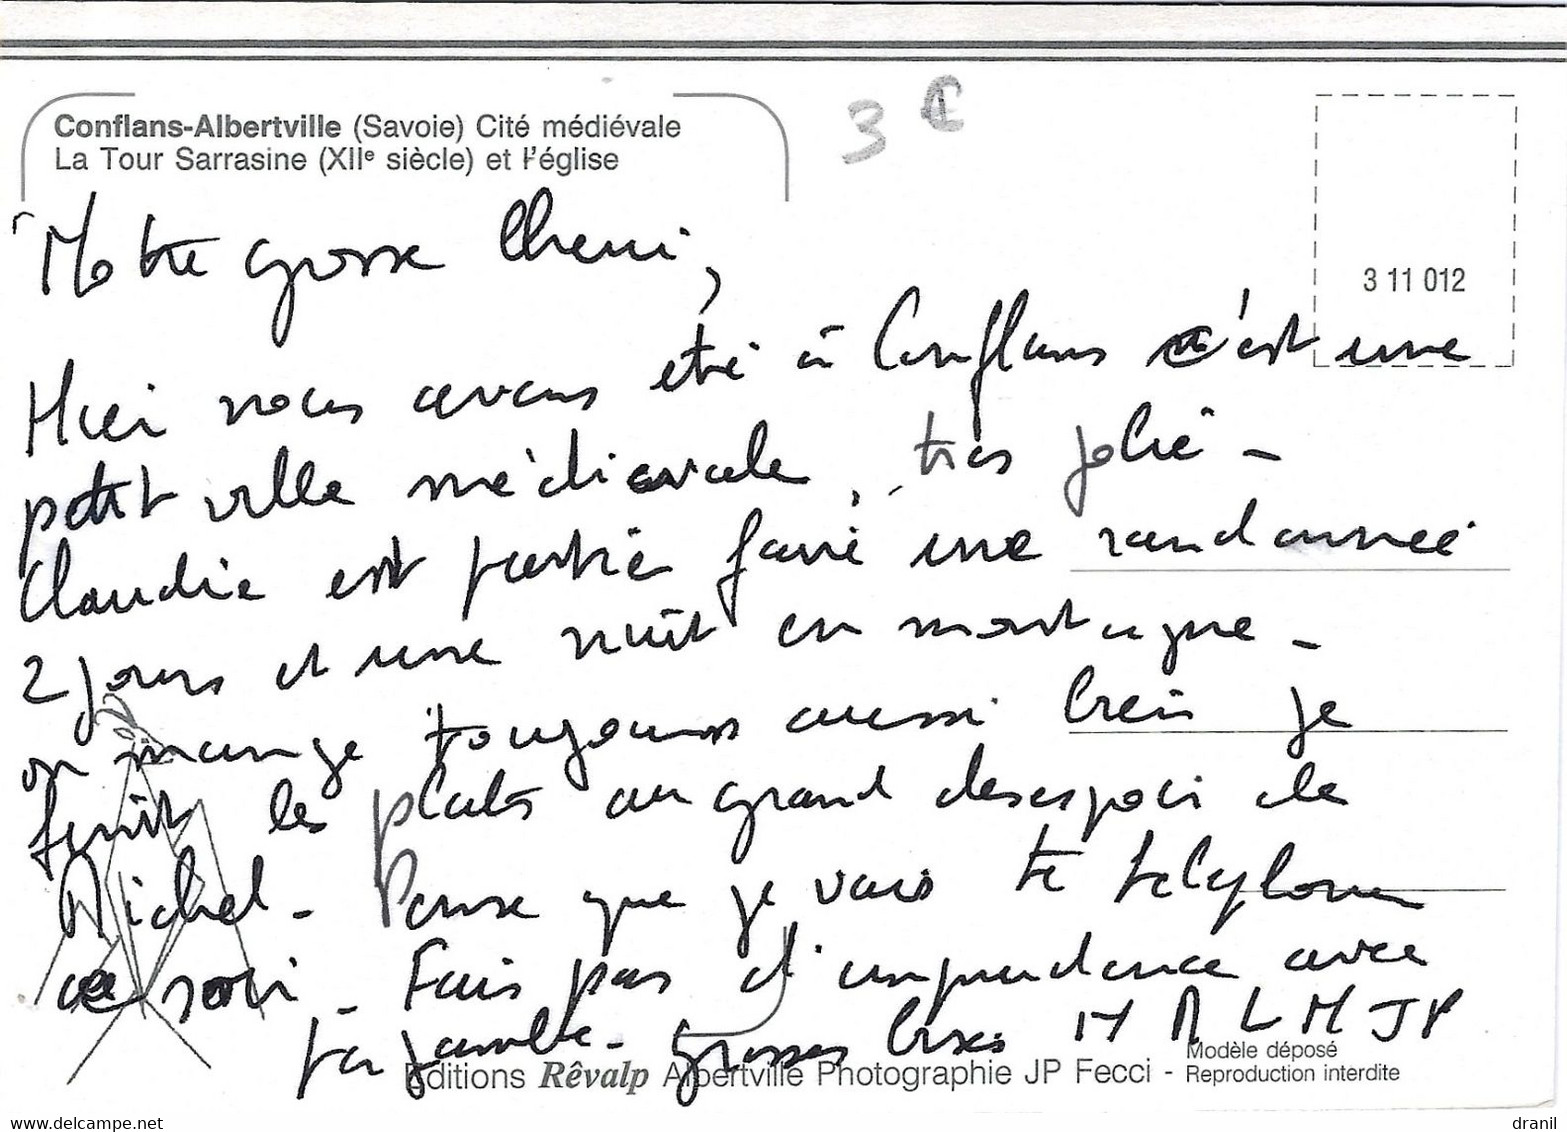 Conflans-Albertville (Savoie) Cité médiévale
La Tour Sarrasine (XIIe siècle) et l'église
3 €
3 11 012
Notre grosse Cherie,
Hier nous avons été à Conflans c'est une
petit ville médievale, très jolie -
Claudie est partie faire une randonnée
2 jours et une nuit en montagne -
on mange toujours aussi bien je
finis les plats au grand desespoir de
Michel - Pense que je vais te telephone
ce soir - Fais pas d'imprudence avec
ta jambe - grosses bises M M L M JP
Editions Rêvalp Albertville Photographie JP Fecci - Modèle déposé
Reproduction interdite
www.delcampe.net
dranil